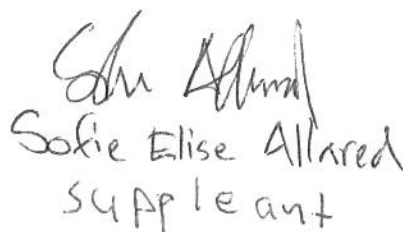 Sofie Elise Allared
suppleant